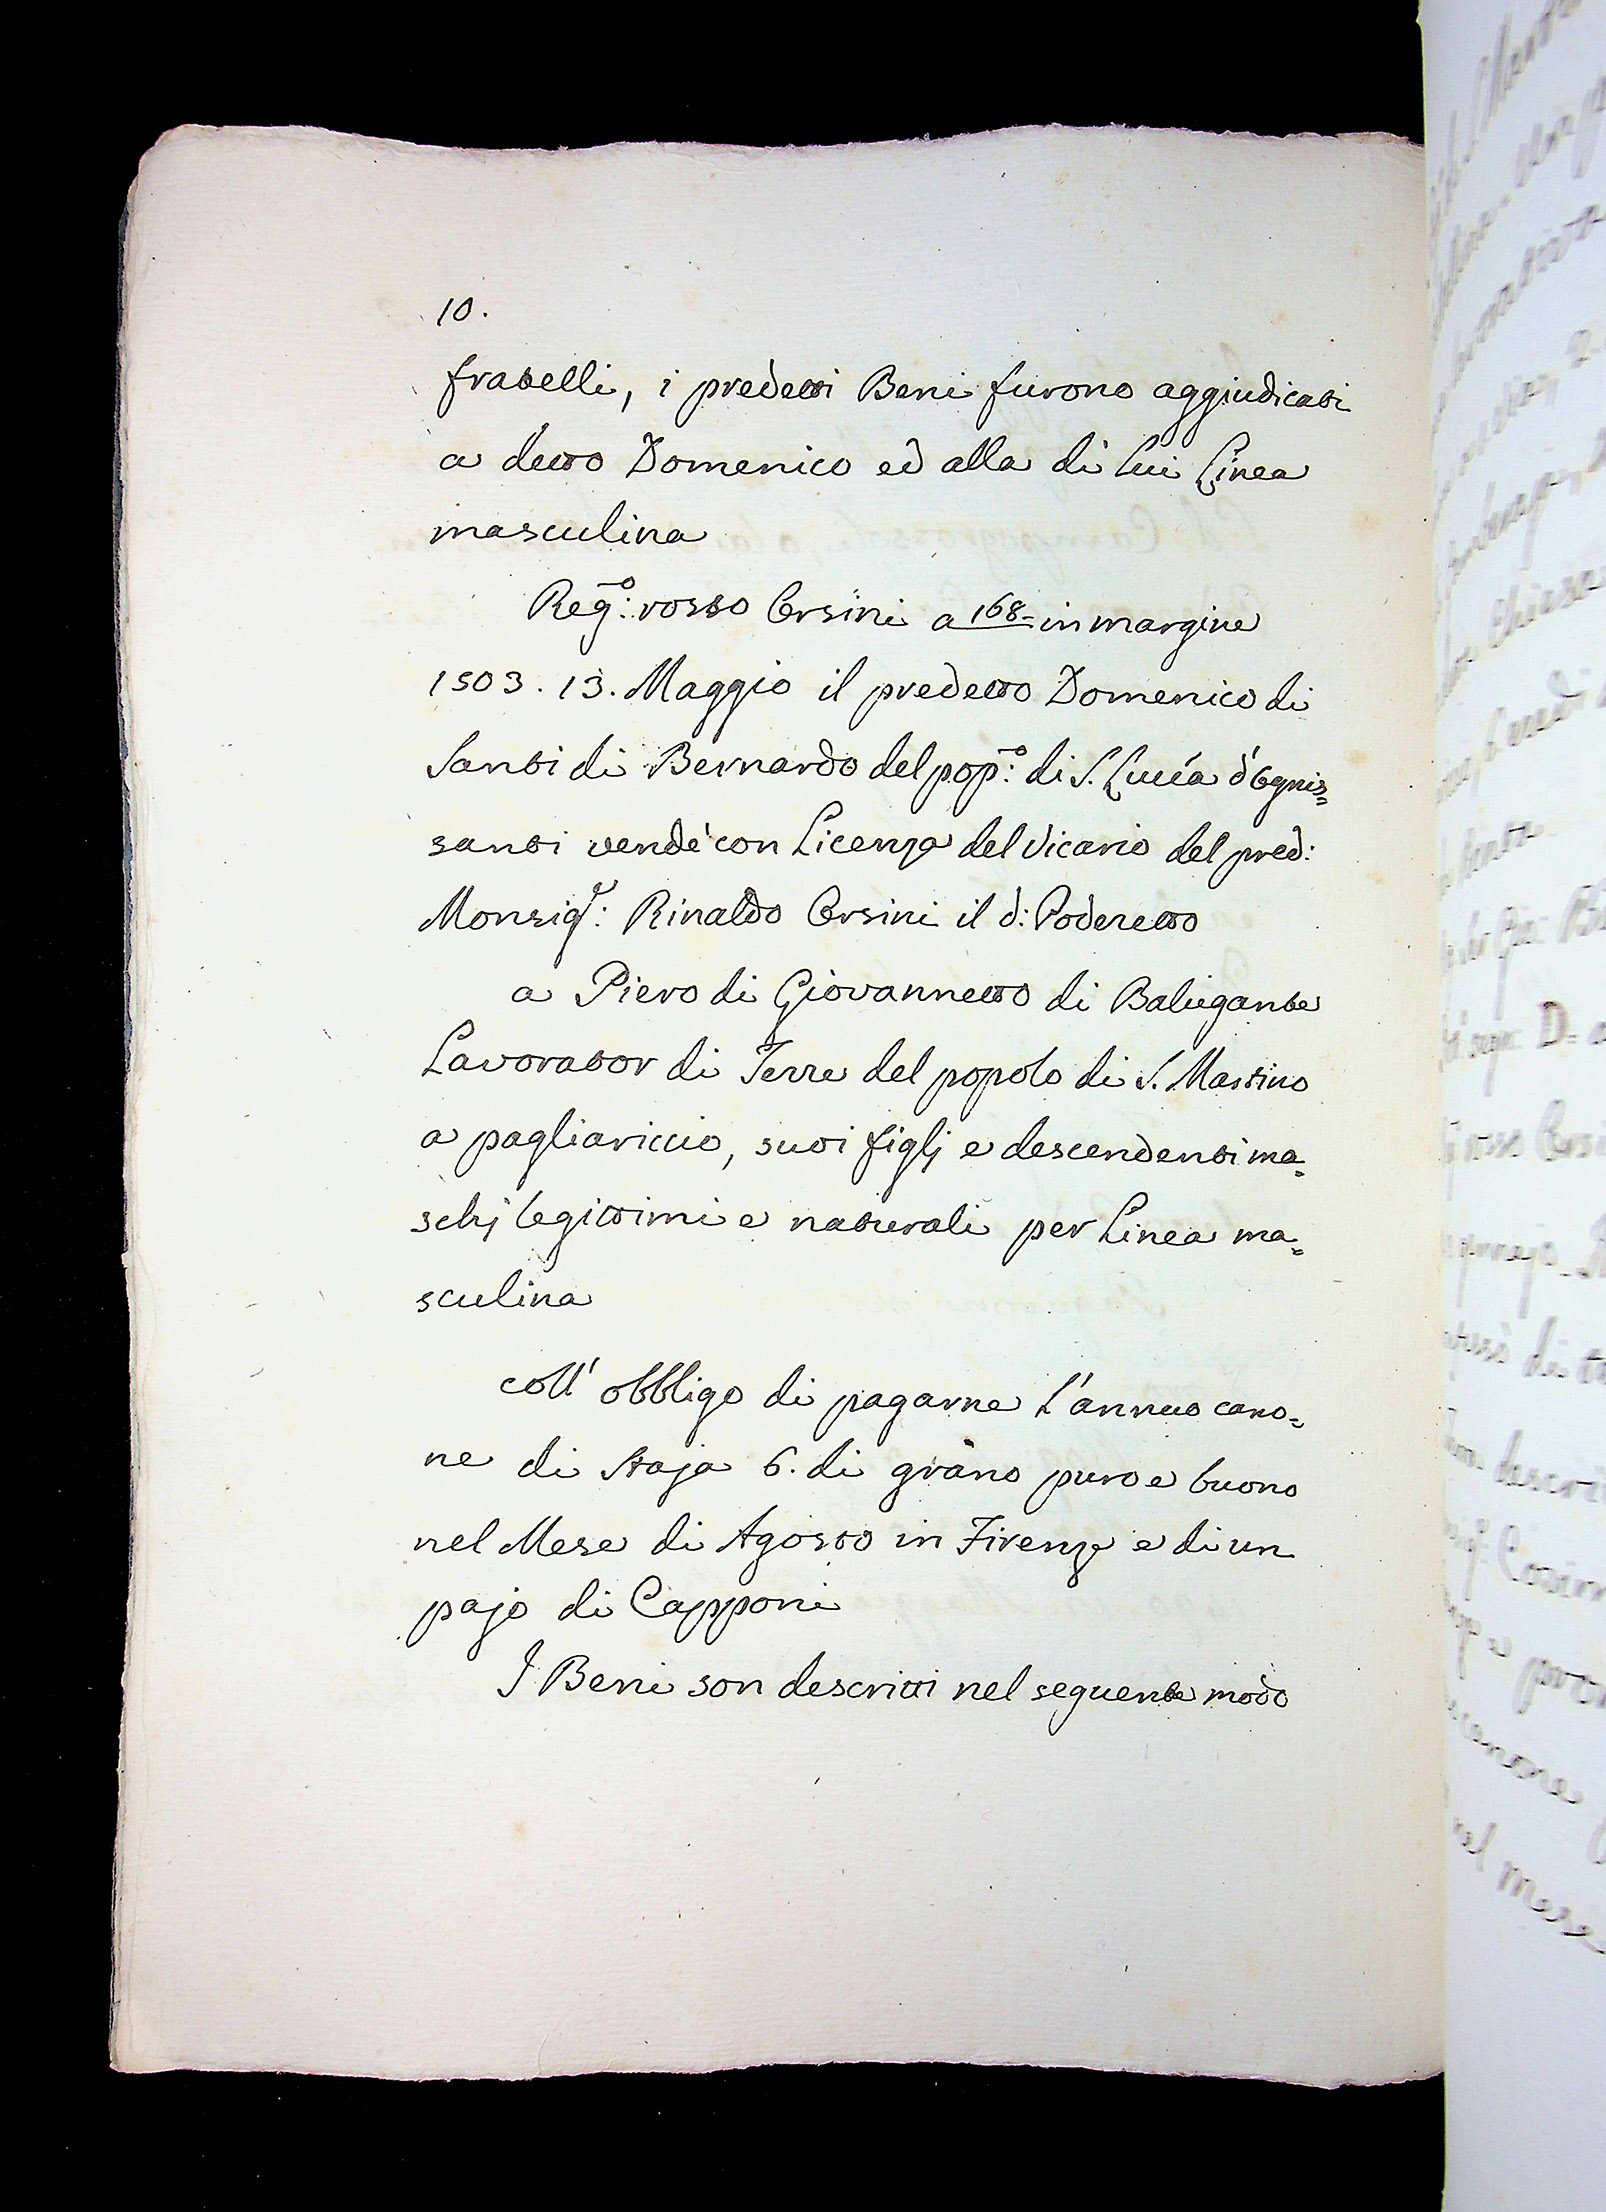 10.
fratelli, i predetti Beni furono aggiudicati
a detto Domenico ed alla di lui Linea
masculina
Reg:º rosso Orsini a 168= in margine
1503. 13. Maggio il predetto Domenico di
Santi di Bernardo del pop:º di S. Lucía d'Ognis=
santi vendè con Licenza del Vicario del pred:
Monsig:r Rinaldo Orsini il d: Poderetto
a Piero di Giovannetto di Baligante
Lavorator di Terre del popolo di S. Martino
a pagliariccio, suoi figlj e descendenti ma=
schj legittimi e naturali per Linea ma=
sculina
coll' obbligo di pagarne l'annuo cano=
ne di Staja 6. di grano puro e buono
nel Mese di Agosto in Firenze e di un
pajo di Capponi
I Beni son descritti nel seguente modo